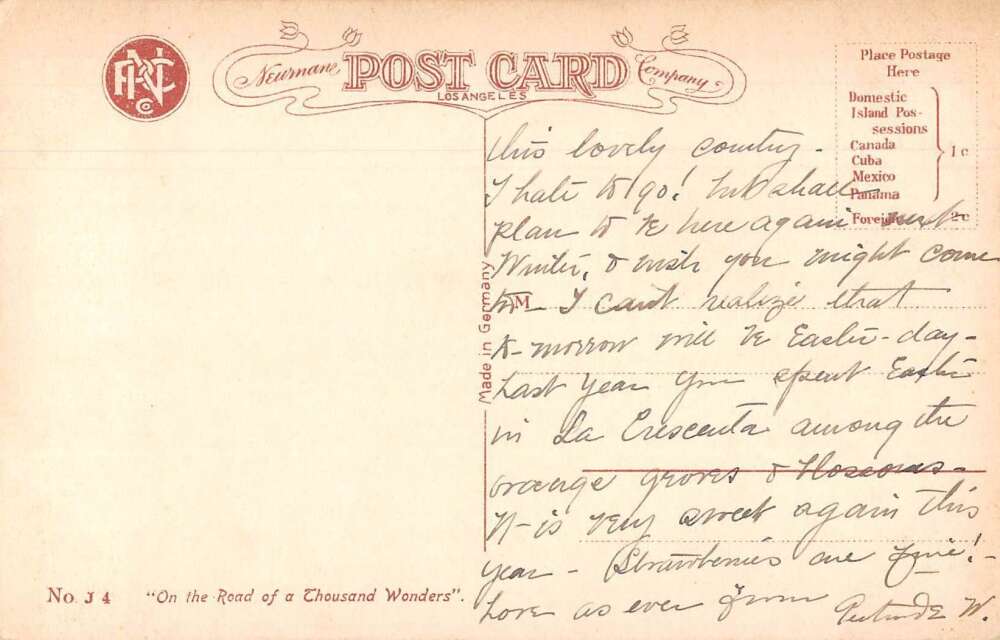 PNC Co
Newmans POST CARD Company
LOS ANGELES
Place Postage
Here
Domestic
Island Pos-
sessions
Canada
Cuba
Mexico
Panama
1c
Foreign 2c
this lovely country -
I hate to go! but shall
plan to be here again next
Winter, & wish you might come
to - I can't realize that
to-morrow will be Easter-day -
Last year you spent Easter
in La Crescenta among the
orange groves & blossoms -
It is very sweet again this
year - Strawberries are fine! -
Love as ever from Gertrude W.
M
Made in Germany
No. J 4 "On the Road of a Thousand Wonders".